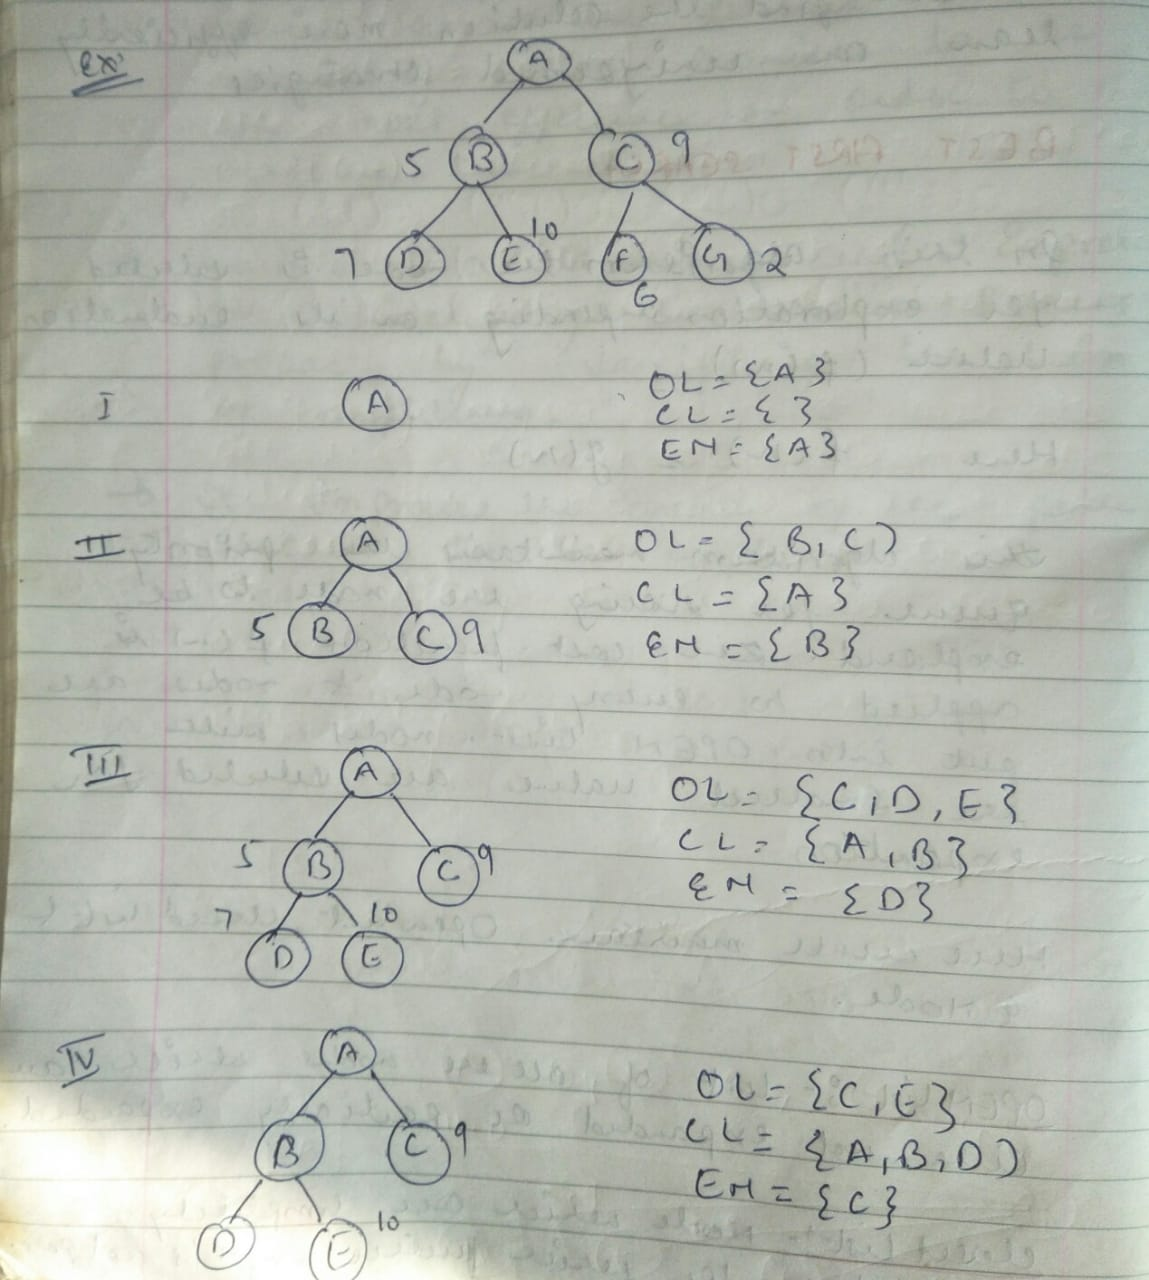 Ex:
A
5 B C 9
7 D E 10 F 6 G 2
I
A
OL = {A}
CL = { }
EN = {A}
II
A
5 B C 9
OL = { B, C)
CL = {A}
EN = {B}
III
A
5 B C 9
7 D 10 E
OL = {C, D, E}
CL = {A, B}
EN = {D}
IV
A
B C 9
D E 10
OL = {C, E}
CL = {A, B, D)
EN = {C}